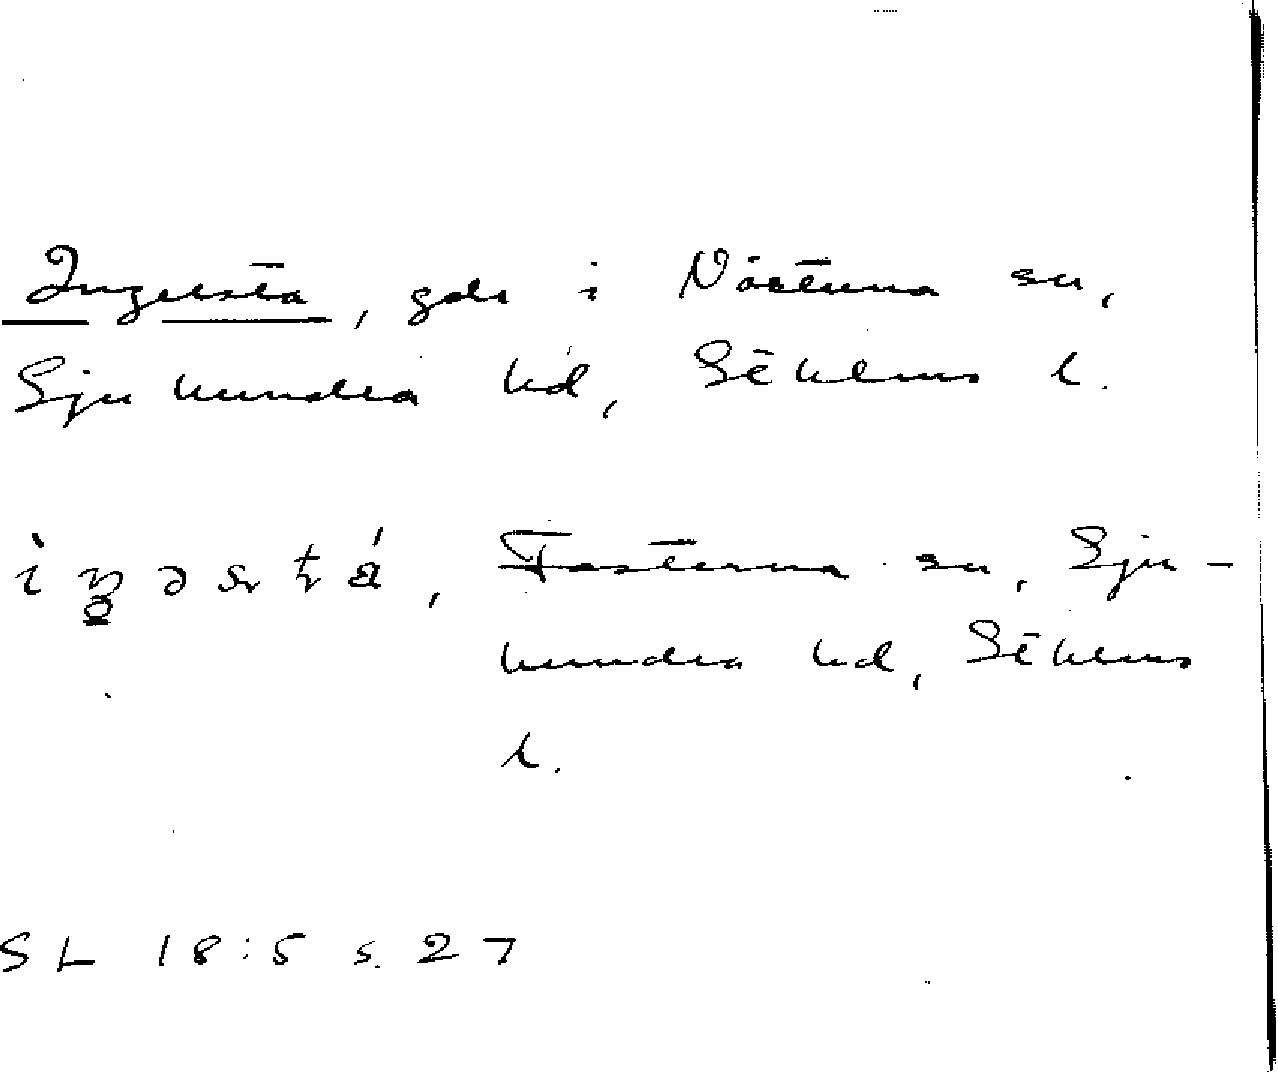 Ingelsta, gdr i Närtuna sn,
Sjuhundra hd, Sthlms l.
Fasterna sn, Sju-
hundra hd, Sthlms
l.
SL 18:5 s. 27